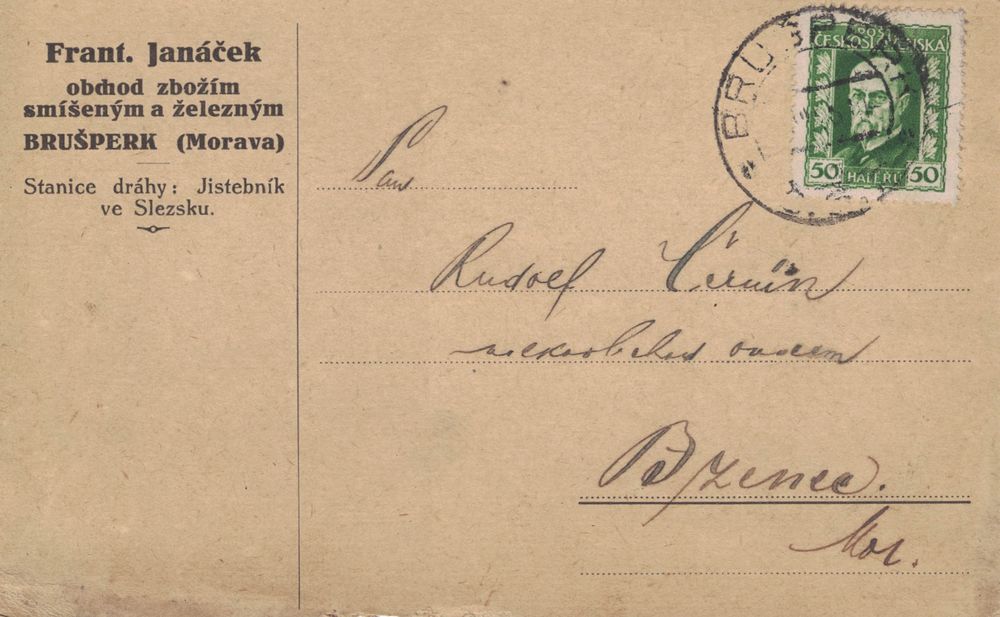 Frant. Janáček
obchod zbožím
smíšeným a železným
BRUŠPERK (Morava)
Stanice dráhy: Jistebník
ve Slezsku.
50 HALÉŘŮ 50
Pan
Rudolf
velkoobchod ovocem
Bzenec.
Mor.